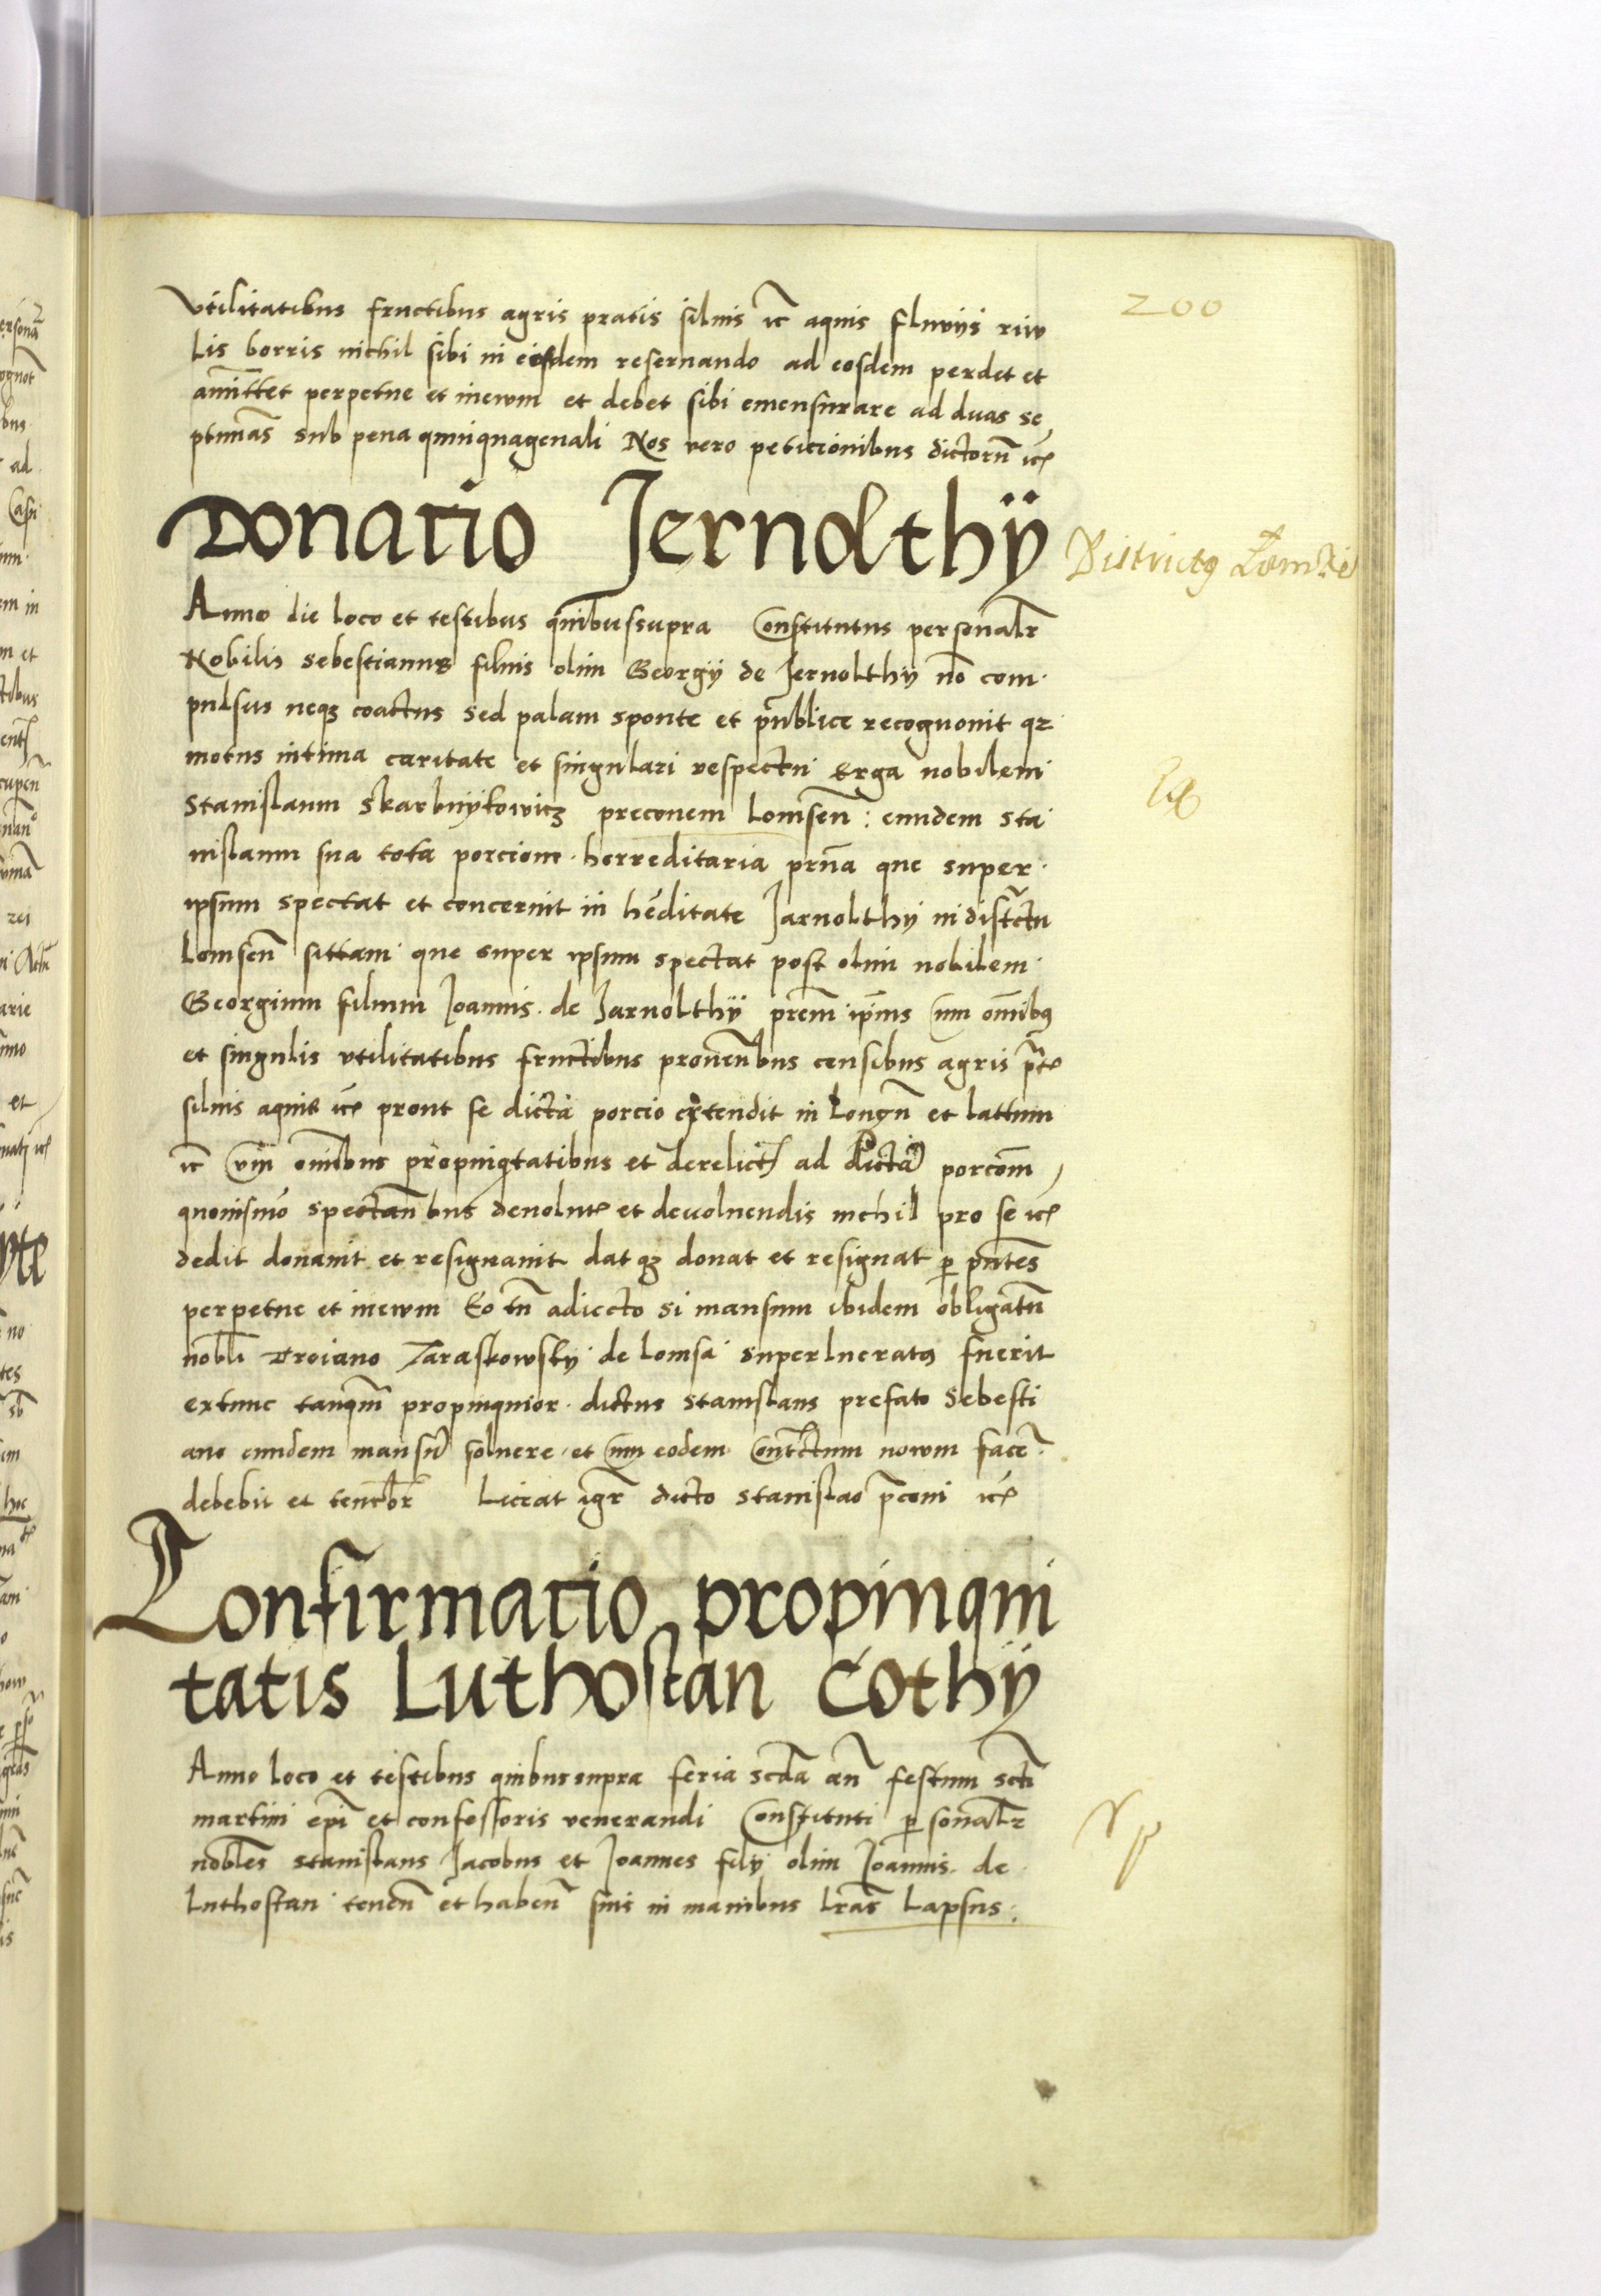 200
vtilitatibus fructibus agris pratis siluis ic̄ aquis fluvijs rivu
lis borris nichil sibi in eisdem reseruando ad eosdem perdet et
amittet perpetue et inewm et debet sibi emensurare ad duas se
ptimās sub pena quiiquagenali Nos vero peticionibus dictorū ic̄
Donatio Jernolthÿ
Districtus Lomzie
Anno die loco et testibus quibussupra Constitutus personalr̄
Nobilis Sebestianus filius olim Georgij de Jernolthy nō com
pulsus neqz coactus sed palam sponte et publice recognouit qz
motus intima caritate et singulari respectu Erga nobilem
Stanislaum Skarbnykowicz preconem Lomsen̄: eundem Sta
nislaum sua tota porcione herreditaria prn̄a que super
ipsum spectat et concernit in hēditate Jarnolthy in distr̄ctu
Lomsen̄ sittam que super ipsum spectat post olim nobilem
Georgium filium Joannis de Jarnolthÿ prem̄ ipīus Cum om̄ibus
et singulis vtilitatibus fructibus prouen̄bus censibus agris prt̄
siluis aquis ic̄ prout se dicta porcio extendit in Longū et lattum
ic̄ Cum om̄ibus propinqtatibus et derelict ad dictā porcom̄
quouismō spectan̄bus deuolut et deuoluendis nichil pro se ic̄
dedit donauit et resignauit dat qz donat et resignat p pn̄tes
perpetue et inewm Eo tn̄ adiecto si mansum ibidem obligatū
nobli Troiano Zaraskowsky de Lomsa superlueratus fuerit
extunc tanqm̄ propinquior dictus Stanislaus prefato Sebesti
ano eundem mansū soluere et Cum eodem Contr̄ctum nowm facē
debebit et teneb̄r Liceat igr̄ dicto Stanislao p̄coni ic̄
Confirmatio propinqui
tatis Luthostan Cothÿ
Anno loco et testibus quibussupra feria scd̄a an̄ festum sct̄i
martini ep̄i et confessoris venerandi Constituti personalr̄
nobles Stanislaus Jacobus et Joannes filij olim Joannis de
Luthostan tenen̄ et haben̄ suis in manibus lr̄as Lapsus